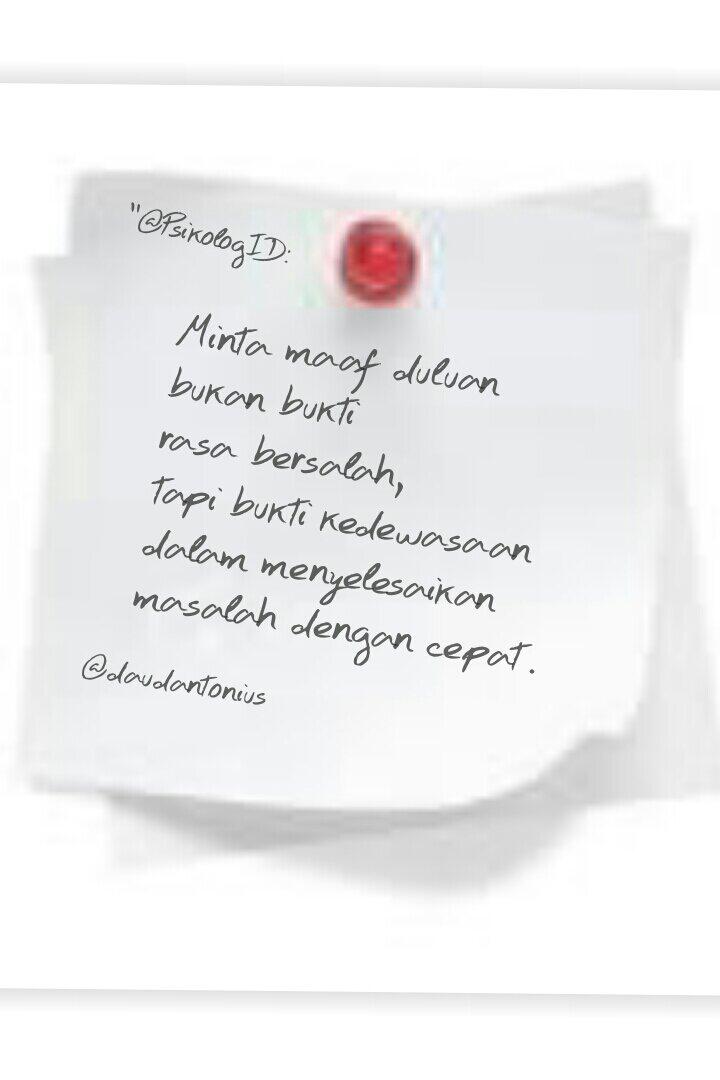 "@PsikologID:
Minta maaf duluan
bukan bukti
rasa bersalah,
tapi bukti kedewasaan
dalam menyelesaikan
masalah dengan cepat.
@daudantonius